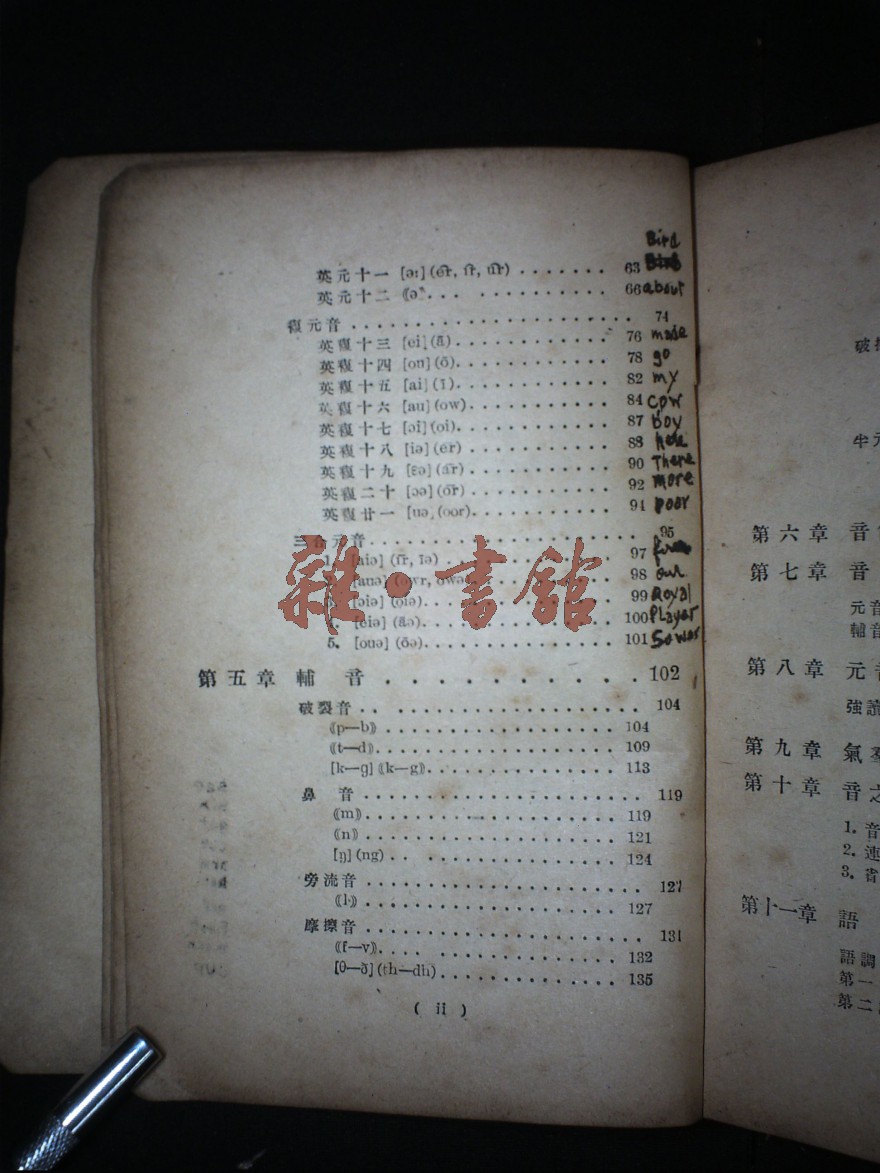 Bird
英元十一 [əː] (êr, îr, ûr) . . . . . . . 63
英元十二 ⟪ə⟫ . . . . . . . . . . . . 66 about
複元音 . . . . . . . . . . . . . . . . . . . 74
英複十三 [ei] (ā) . . . . . . . . . . . . 76 made
英複十四 [ou] (ō) . . . . . . . . . . . . 78 go
英複十五 [ai] (ī) . . . . . . . . . . . . 82 my
英複十六 [au] (ow) . . . . . . . . . . . 84 cow
英複十七 [ɔi] (oi) . . . . . . . . . . . . 87 boy
英複十八 [iə] (ēr) . . . . . . . . . . . . 88
英複十九 [ɛə] (âr) . . . . . . . . . . . 90 There
英複二十 [ɔə] (ōr) . . . . . . . . . . . 92 more
英複廿一 [uə] (oor) . . . . . . . . . . 94 poor
三合元音 . . . . . . . . . . . . . . . . . . 95
1. [aiə] (īr, īə) . . . . . . . . . . . . 97
[auə] (owr, owə) . . . . . . . . . . 98 our
[ɔiə] (oiə) . . . . . . . . . . . . 99 Royal
[eiə] (āə) . . . . . . . . . . . . 100 Player
5. [ouə] (ōə) . . . . . . . . . . . . 101 Sower
雜·書館
第五章 輔音 . . . . . . . . . . . 102
破裂音 . . . . . . . . . . . . . . . . . 104
⟪p—b⟫ . . . . . . . . . . . . . . . 104
⟪t—d⟫ . . . . . . . . . . . . . . . 109
[k—g] ⟪k—g⟫ . . . . . . . . . . . 113
鼻音 . . . . . . . . . . . . . . . . . . 119
⟪m⟫ . . . . . . . . . . . . . . . . 119
⟪n⟫ . . . . . . . . . . . . . . . . 121
[ŋ] (ng) . . . . . . . . . . . . . . 124
旁流音 . . . . . . . . . . . . . . . . . 127
⟪l⟫ . . . . . . . . . . . . . . . . 127
摩擦音 . . . . . . . . . . . . . . . . . 131
⟪f—v⟫ . . . . . . . . . . . . . . . 132
[θ—ð] (th—dh) . . . . . . . . . . . 135
( ii )
破
半元
第六章 音
第七章 音
元音
輔音
第八章 元音
強讀
第九章 氣羣
第十章 音之
1. 音
2. 連
3. 省
第十一章 語
語調
第一
第二